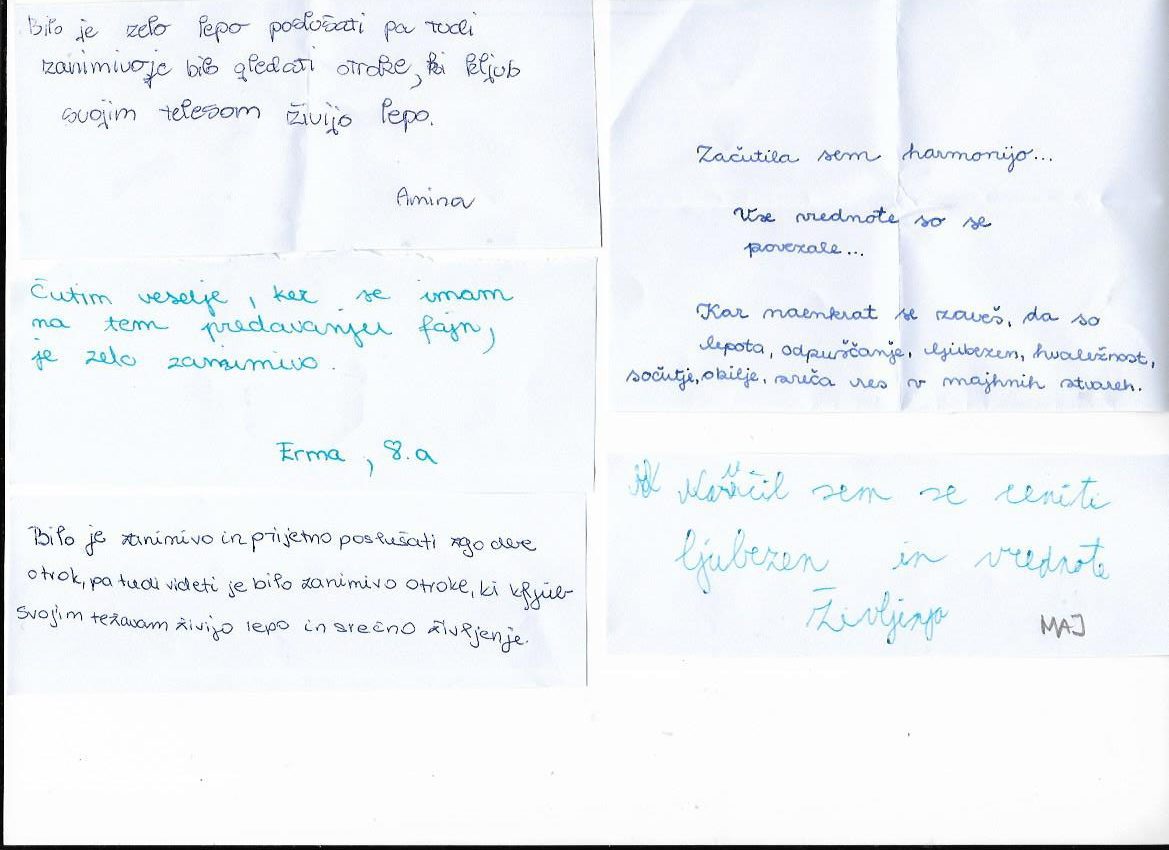 Bilo je zelo lepo poslušati pa tudi
zanimivo je bilo gledati otroke, ki kljub
svojim telesom živijo lepo.
Amina
Čutim veselje, ker se imam
na tem predavanjeu fajn,
je zelo zanimivo.
Erma, 8.a
Bilo je zanimivo in prijetno poslušati zgodbe
otrok, pa tudi videti je bilo zanimivo otroke, ki kljub
svojim težavam živijo lepo in srečno življenje.
Začutila sem harmonijo...
Vse vrednote so se
povezale...
Kar naenkrat se zaveš, da so
lepota, odpuščanje, ljubezen, hvaležnost,
sočutje, obilje, sreča res v majhnih stvareh.
Naučil sem se ceniti
ljubezen in vrednote
življenja
MAJ